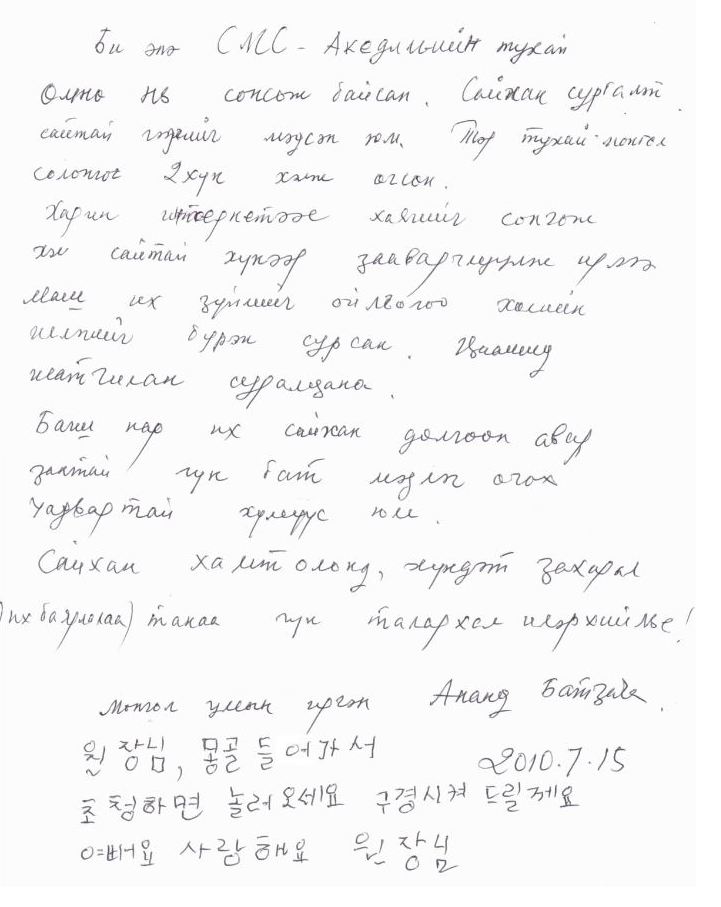 Би энэ СМС - Академийн тухай
Өмнө нь сонсож байсан. Сайхан сургалт
сайтай гэдгийг мэдсэн юм. Тэр тухай монгол
солонгос 2 хүн хэлж өгсөн.
Харин интернетээс хаягийг сонгож
хэл сайтай хүнээр заавар ирлээ
Маш их зүйлийг ойлгоо
бүрэн сурсан. Цаашид
суралцана.
Багш нар их сайхан долгоон авир
зантай гүн бат мэдлэг өгөх
Чадвартай хүмүүс юм.
Сайхан хамт олонд, хүндэт захирал
их баярлалаа) танаа гүн талархал илэрхийлье!
Монгол улсын иргэн Ананд Батзая.
원장님, 몽골 들어가서
2010.7.15
초청하면 놀러오세요 구경시켜 드릴께요
예뻐요 사랑해요 원장님